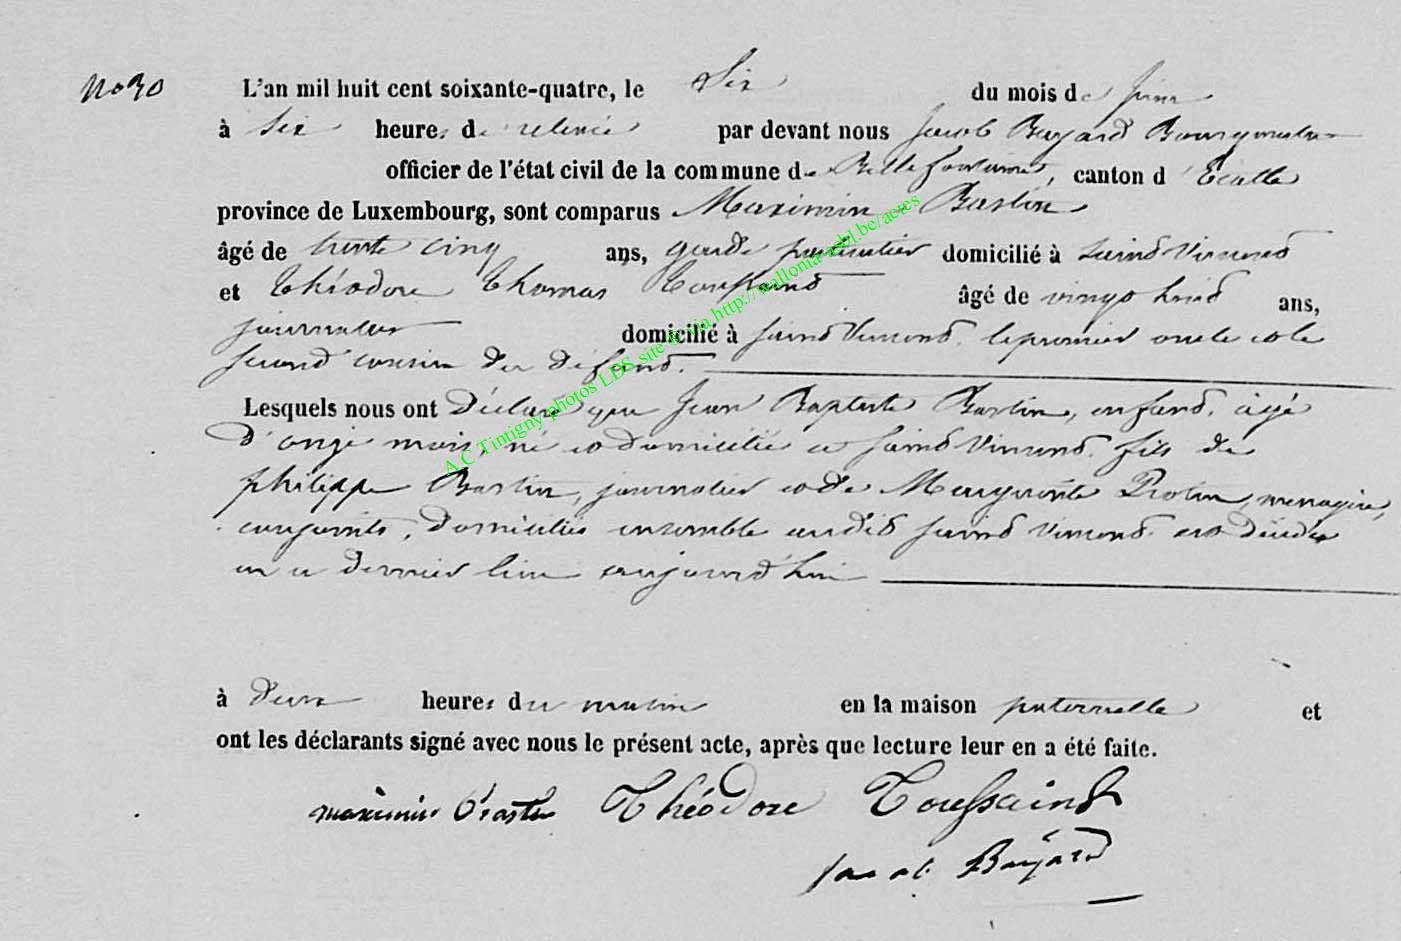 No 30 L'an mil huit cent soixante-quatre, le Six du mois de juin
à six heures de relevée par devant nous Jacob Bayard Bourgmestre
officier de l'état civil de la commune de Bellefontaine, canton d'Etalle
province de Luxembourg, sont comparus Maximin Bastin
âgé de trente cinq ans, garde particulier domicilié à Saint Vincent
et Théodore Thomas Toussaint âgé de vingt huit ans,
journalier domicilié à Saint Vincent. le premier oncle et le
second cousin du défunt.
Lesquels nous ont Déclaré que Jean Baptiste Bastin, enfant, âgé
d'onze mois, né et domicilié à Saint Vincent, fils de
philippe Bastin, journalier et de Marguerite menagère,
conjoints, domiciliés ensemble audit Saint Vincent, est décédé
en ce dernier lieu aujourd'hui
à deux heures du matin en la maison paternelle et
ont les déclarants signé avec nous le présent acte, après que lecture leur en a été faite.
maximin Bastin Théodore Toussaint
Jacob Bayard
A.C Tintigny photos LDS, site via http://wallonia-asbl.be/actes